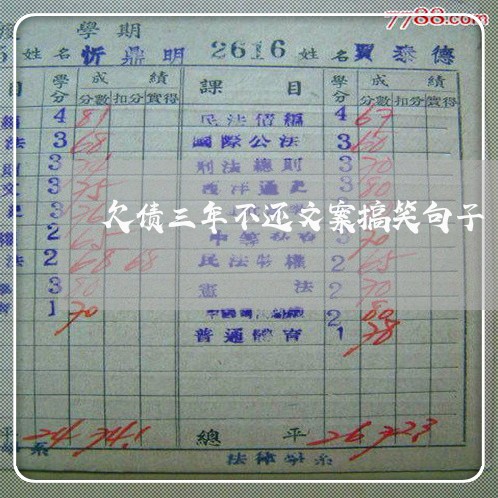 7788.com
學期
姓名 忻鼎明 2616 姓名 賈泰德
目 學分 成績 課目 學分 成績
分數 扣分 實得 分數 扣分 實得
4 81 民法債編 4 67
法 3 68 國際公法 3 60
3 刑法總則 3 70
3 75 西洋通史 3 80
欠债三年不还文案搞笑句子
2 65 70
法 2 68 68 民法物權 2 65
3 80 憲法 2 70
1 70 2 80
普通體育 1 78
平 24 74.1 總平 26 72.3
系 法律學系